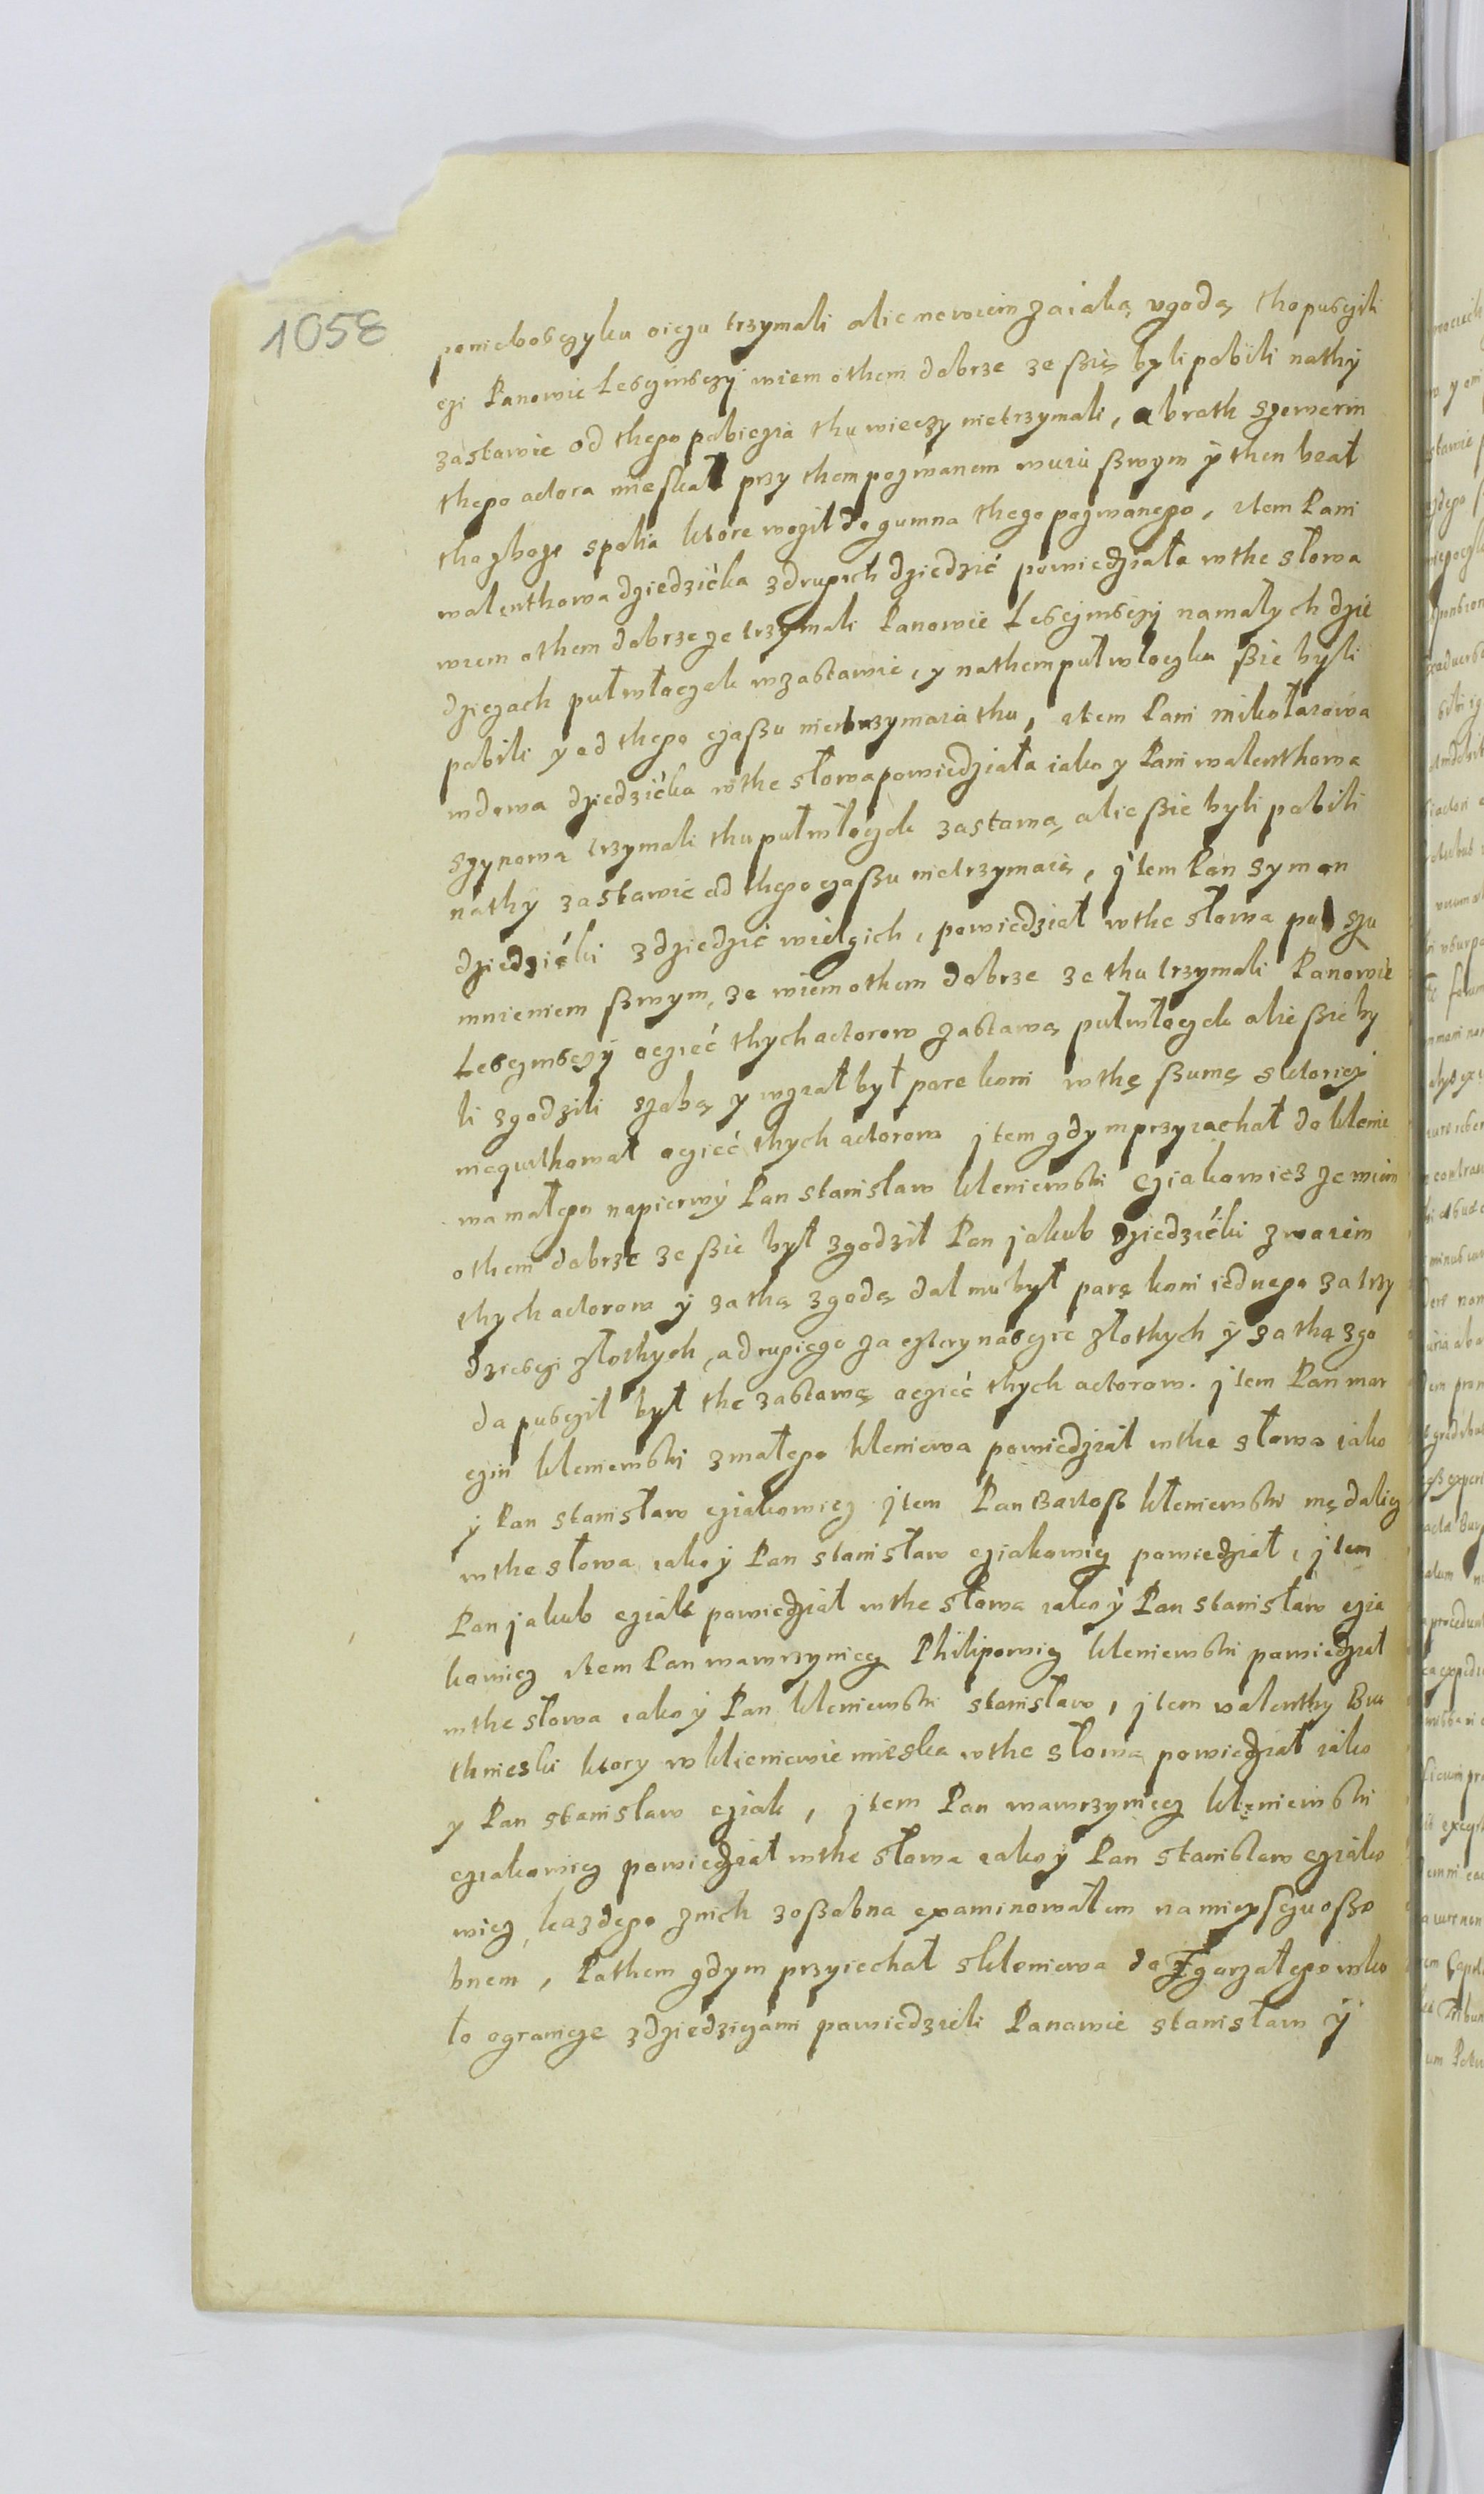 1058
poniebosczyku oiczu trzymali alie newiem zaiaką ugodą thopusczili
czi Panowie Lesczinsczÿ wiem othem dobrze ze ßię byli pobili nathÿ
zastawie od thego pobiczia thu wieczÿ nietrzymali, a brath szewerin
thego actora mieskał przy them pozwanem wuiu ßwym ÿ then beał
tho zboze spolia ktore woził do gumna thego pozwanego, item Pani
walenthowa dziedzićka zdrugich dziedzić powiedziała wthe słowa
wiem othem dobrze ze trzymali Panowie Lesczinsczÿ namałych dzie
dziczach pułwłoczek wzastawie, y nathem pułwłoczku ßie byli
pobili y od thego czaßu nietrzymaia thu, item Pani mikołaiowa
wdowa dziedzićka wthe słowa powiedziała iako y Pani walenthowa
szynowa trzymali thu pułwłoczek zastawą, alie ßie byli pobili
nathÿ zastawie od thego czaßu nietrzymaią, jtem Pan symon
dziedzićki zdziedzić wielgich, powiedział wthe słowa pod szu
mnieniem ßwym, ze wiem othem dobrze ze thu trzymali Panowie
Lesczinsczÿ oczieć thych actorow zastawą pułwłoczek alie ßie by
li zgodzili szobą y wział był pare koni wthę ßumę sktoriej
niequithował oczieć thych actorow jtem gdym przyiachał do klenie
wa małego napierwÿ Pan stanisław kleniewski cziakowicz ze wiem
othem dobrze ze ßie był zgodził Pan jakub dziedzićki z
thych actorow ÿ za thą zgodą dał mu był parę koni iednego za trzy
dziesczi złothych, a drugiego za czternascie złothych ÿ za thą zgo
da pusczil był the zastawę oczieć thych actorow. jtem Pan mar
czin kleniewski zmałego kleniewa powiedział wthe słowa iako
ÿ Pan stanisław cziakowicz jtem Pan Bartoß kłeniewski
wthe słowa iako ÿ Pan stanisław cziakowicz powiedział, jtem
Pan jakub cziak powiedział wthe słowa iako ÿ Pan stanisław czia
kowicz item Pan wawrzyniecz Philipowicz kleniewski powiedział
wthe słowa iako ÿ Pan kleniewski stanisław, jtem walenthy Bru
thnieski ktory wklieniewie mieska wthe słowa powiedział iako
y Pan stanislaw cziak, jtem Pan wawrzyniecz kleniewski
cziakowicz powiedział wthe słowa iako ÿ Pan stanislaw cziako
wicz, kazdego znich zoßobna examinowałem na mieysczu oßo
bnem, Pathem gdym przyiechał skleniewa do Zgorzałego wko
lo ogranicze zdziedziczami powiedzieli Panowie stanisław ÿ